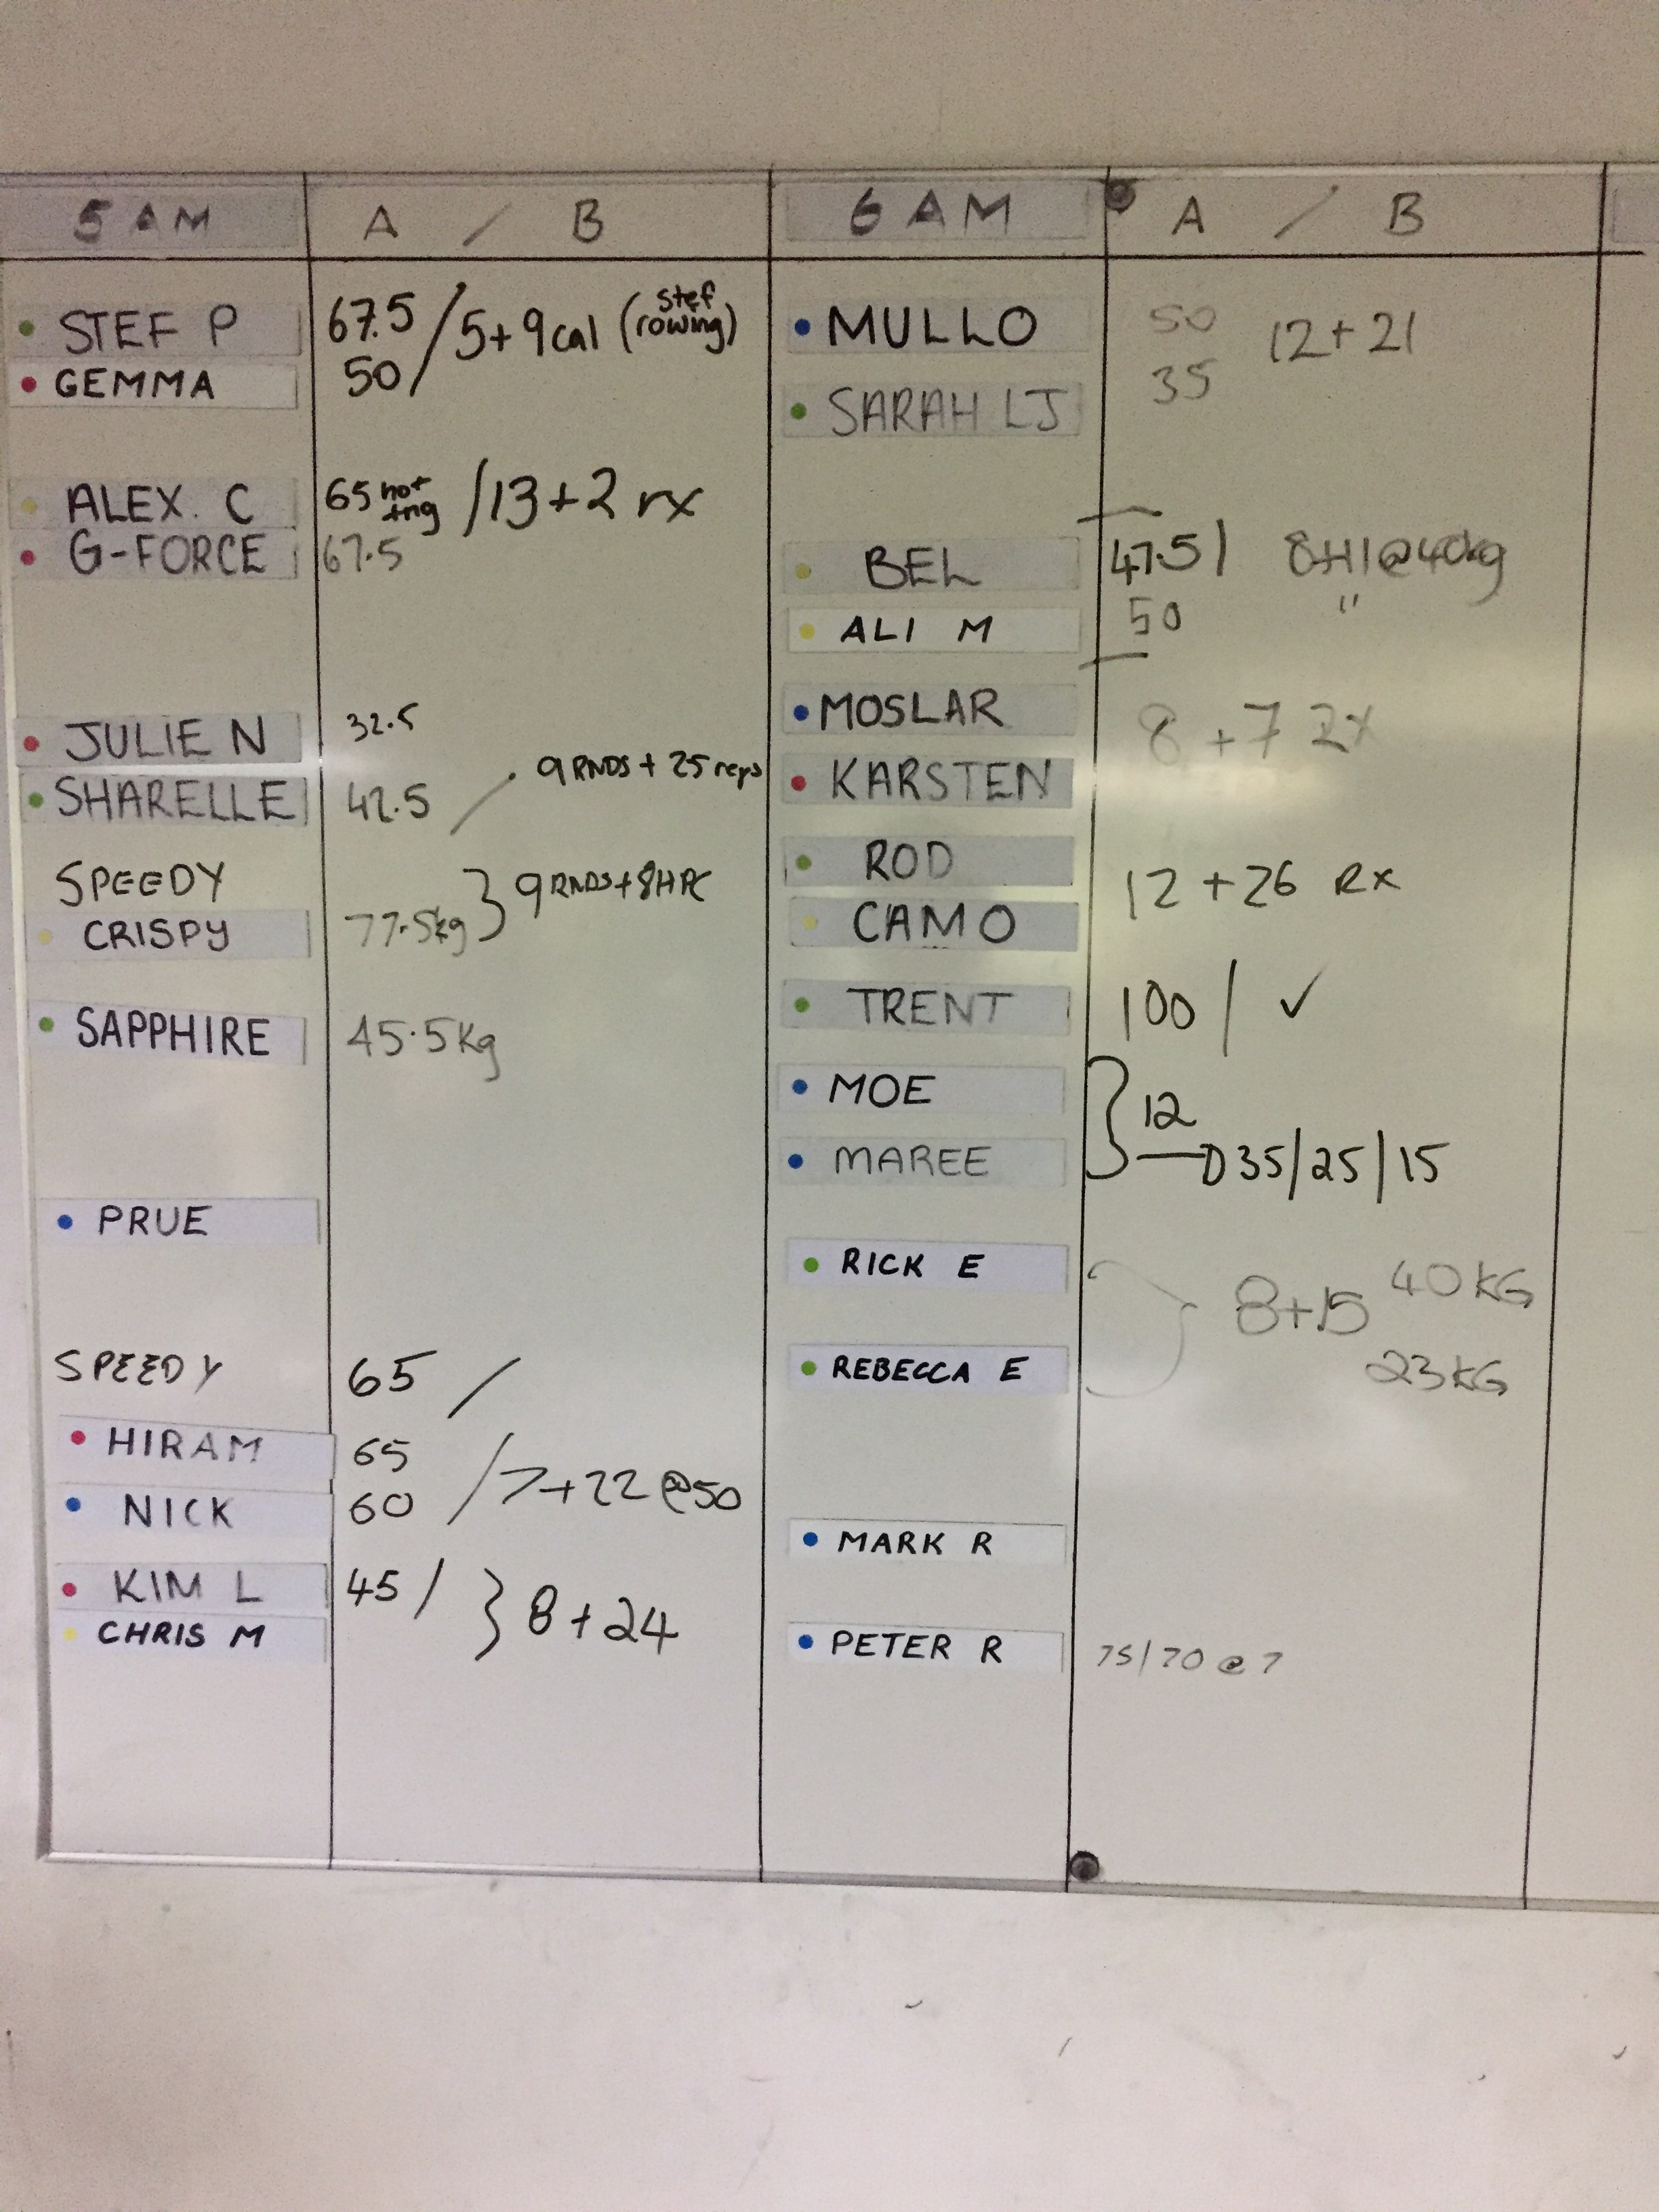 5 AM A / B
STEF P 67.5 / 5+9cal (stef rowing)
GEMMA 50
ALEX. C 65 not tng / 13+2 rx
G-FORCE 67.5
JULIE N 32.5
SHARELLE 42.5 / 9 RNDS + 25 reps
SPEEDY
CRISPY 77.5kg } 9 RNDS + 8 HPC
SAPPHIRE 45.5kg
PRUE
SPEEDY 65 /
HIRAM 65
NICK 60 / 7+22 @50
KIM L 45 /
CHRIS M } 8 + 24
6 AM A / B
MULLO 50 12+21
SARAH LJ 35
BEL 47.5 | 8+11@40kg
ALI M 50 "
MOSLAR 8+7
KARSTEN
ROD
CAMO 12 +26 Rx
TRENT 100 / ✓
MOE } 12
MAREE 35/25/15
RICK E 8+15 40KG
REBECCA E 23KG
MARK R
PETER R 75/70 @ 7